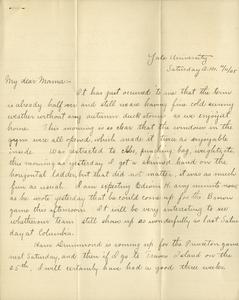 Yale University
Saturday A.M. 11/4/05
My dear Mama:-
It has just occurred to me that the term
is already half over and still we are having fine cold sunny
weather without any autumn dark storms as we enjoyed at
home. This morning is so clear that the windows in the
gym were all opened, which made it twice as enjoyable
inside. Was attracted to the punching bag, weights, etc
this morning as yesterday I got a skinned hand on the
horizontal ladder, but that did not matter, it was as much
fun as usual. I am expecting Edwin H. any minute now
as he wrote yesterday that he could come up for the Brown
game this afternoon. It will be very interesting to see
whether our team still show up as wonderfully as last Satur
day at Columbia.
Hans Drummond is coming up for the Princeton game
next Saturday, and then if I go to
25th, I will certainly have had a good three weeks.